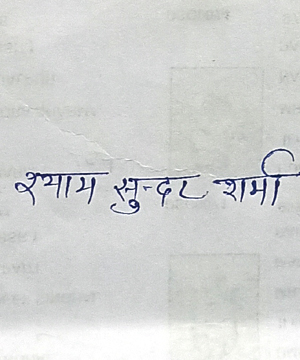 श्याम सुन्दर शर्मा